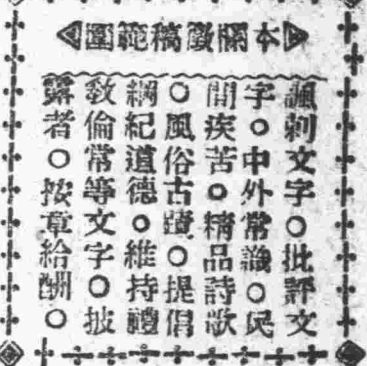 本欄徵稿範圍
諷刺文字○批評文
字○中外常識○民
間疾苦○精品詩歌
○風俗古蹟○提倡
綱紀道德○維持禮
敎倫常等文字○披
露者○按章給酬○